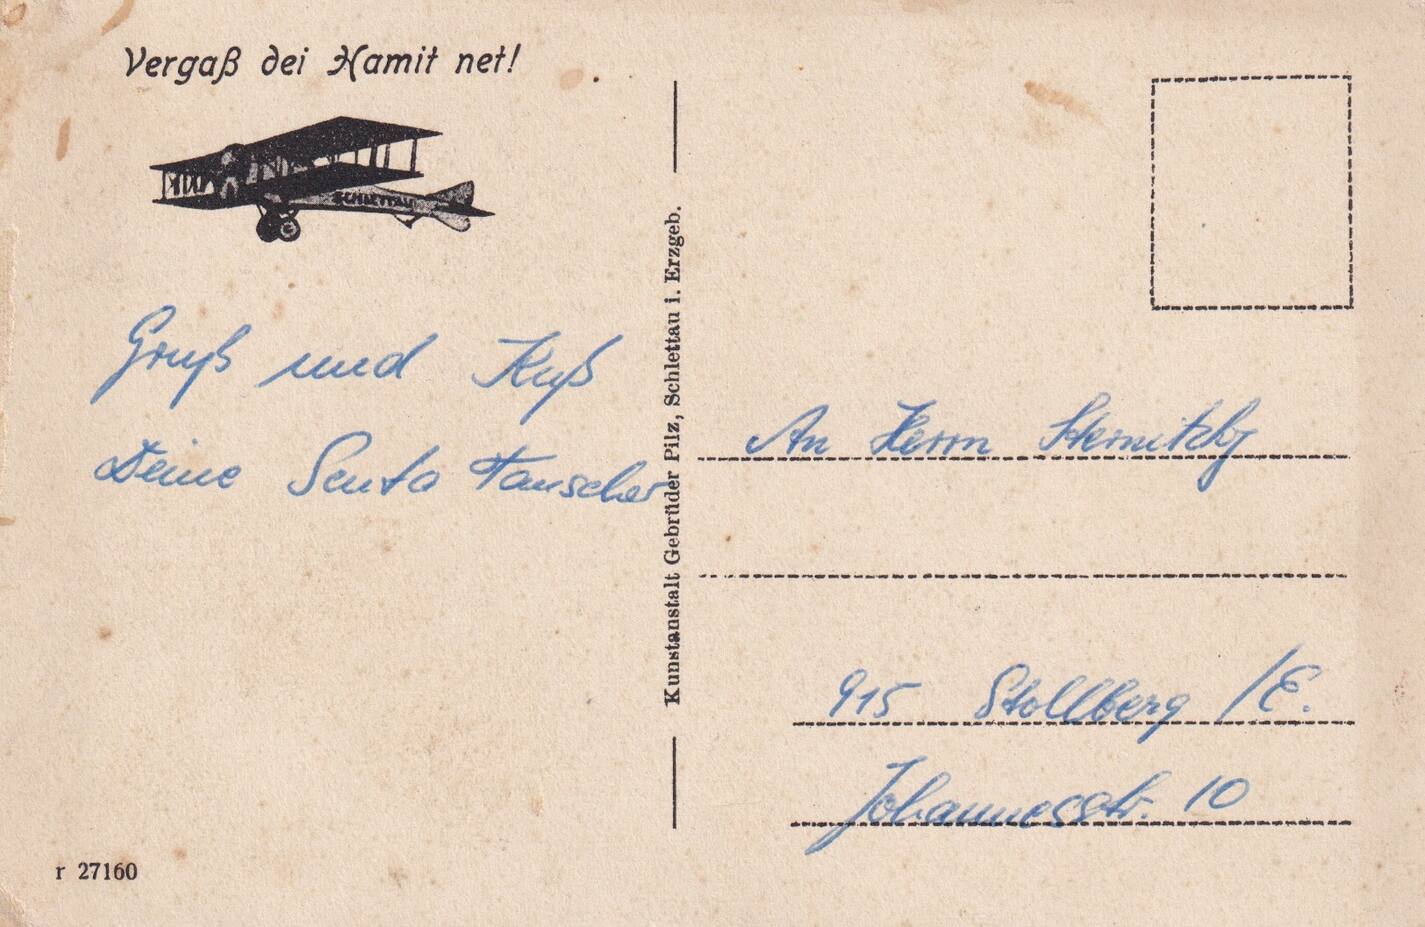 Vergaß dei Hamit net!
SCHLETTAU
Gruß und Kuß
Deine Senta Tauscher
Kunstanstalt Gebrüder Pilz, Schlettau i. Erzgeb.
An Herrn
915 Stollberg /E.
Johannesstr. 10
r 27160